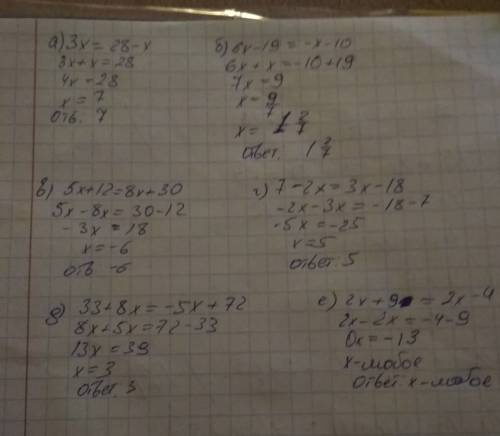 а) 3x = 28 - x
3x + x = 28
4x = 28
x = 7
Отв. 7
б) 6x - 19 = -x - 10
6x + x = -10 + 19
7x = 9
x = 9/7
x = 1 2/7
ответ. 1 2/7
в) 5x + 12 = 8x + 30
5x - 8x = 30 - 12
-3x = 18
x = -6
отв -6
г) 7 - 2x = 3x - 18
-2x - 3x = -18 - 7
-5x = -25
x = 5
ответ: 5
д) 33 + 8x = -5x + 72
8x + 5x = 72 - 33
13x = 39
x = 3
ответ. 3
е) 2x + 9 = 2x - 4
2x - 2x = -4 - 9
0x = -13
x - любое
ответ x - любое